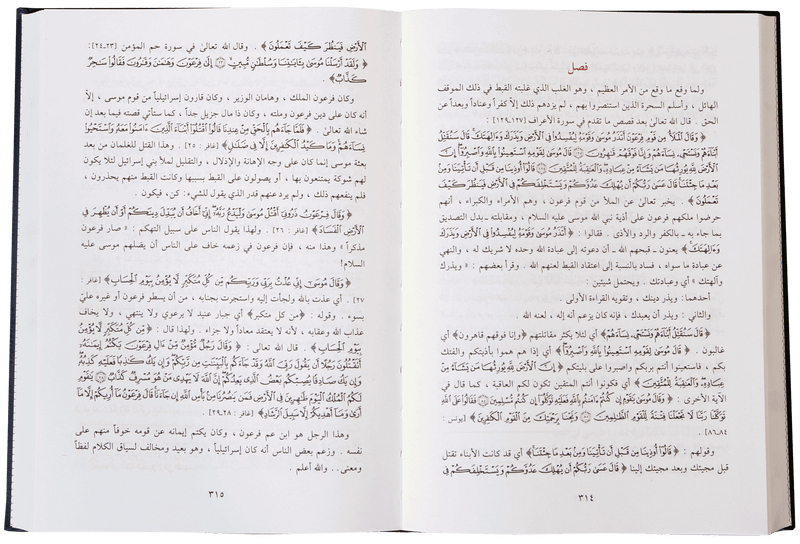 فصل
ولما وقع ما وقع من الأمر العظيم ، وهو الغلب الذي غلبته القبط في ذلك الموقف
الهائل ، وأسلم السحرة الذين استنصروا بهم ، لم يزدهم ذلك إلا كفراً وعناداً وبعداً عن
الحق . قال الله تعالى بعد قصص ما تقدم في سورة الأعراف [١٢٧-١٢٩] :
﴿ وَقَالَ الْمَلَأُ مِن قَوْمِ فِرْعَوْنَ أَتَذَرُ مُوسَىٰ وَقَوْمَهُ لِيُفْسِدُوا فِي الْأَرْضِ وَيَذَرَكَ وَآلِهَتَكَ قَالَ سَنُقَتِّلُ
أَبْنَاءَهُمْ وَنَسْتَحْيِي نِسَاءَهُمْ وَإِنَّا فَوْقَهُمْ قَاهِرُونَ ﴿١٢٧﴾ قَالَ مُوسَىٰ لِقَوْمِهِ اسْتَعِينُوا بِاللَّهِ وَاصْبِرُوا إِنَّ
الْأَرْضَ لِلَّهِ يُورِثُهَا مَن يَشَاءُ مِنْ عِبَادِهِ وَالْعَاقِبَةُ لِلْمُتَّقِينَ ﴿١٢٨﴾ قَالُوا أُوذِينَا مِن قَبْلِ أَن تَأْتِيَنَا وَمِن
بَعْدِ مَا جِئْتَنَا قَالَ عَسَىٰ رَبُّكُمْ أَن يُهْلِكَ عَدُوَّكُمْ وَيَسْتَخْلِفَكُمْ فِي الْأَرْضِ فَيَنظُرَ كَيْفَ
تَعْمَلُونَ ﴾ . يخبر تعالى عن الملأ من قوم فرعون ، وهم الأمراء والكبراء ، أنهم
حرضوا ملكهم فرعون على أذية نبي الله موسى عليه السلام ، ومقابلته ـ بدل التصديق
بما جاء به ـ بالكفر والرد والأذى . فقالوا : ﴿ أَتَذَرُ مُوسَىٰ وَقَوْمَهُ لِيُفْسِدُوا فِي الْأَرْضِ وَيَذَرَكَ
وَآلِهَتَكَ ﴾ يعنون ـ قبحهم الله ـ أن دعوته إلى عبادة الله وحده لا شريك له ، والنهي
عن عبادة ما سواه ، فساد بالنسبة إلى اعتقاد القبط لعنهم الله . وقرأ بعضهم : « ويذرك
وآلهتك » أي وعبادتك . ويحتمل شيئين :
أحدهما: ويذر دينك ، وتقويه القراءة الأولى .
والثاني : ويذر أن يعبدك ، فإنه كان يزعم أنه إله ، لعنه الله .
﴿ قَالَ سَنُقَتِّلُ أَبْنَاءَهُمْ وَنَسْتَحْيِي نِسَاءَهُمْ ﴾ أي لئلا يكثر مقاتلتهم ﴿ وإنا فوقهم قاهرون ﴾ أي
غالبون . ﴿ قَالَ مُوسَىٰ لِقَوْمِهِ اسْتَعِينُوا بِاللَّهِ وَاصْبِرُوا ﴾ أي إذا هم هموا بأذيتكم والفتك
بكم ، فاستعينوا أنتم بربكم واصبروا على بليتكم ﴿ إِنَّ الْأَرْضَ لِلَّهِ يُورِثُهَا مَن يَشَاءُ مِنْ
عِبَادِهِ وَالْعَاقِبَةُ لِلْمُتَّقِينَ ﴾ أي فكونوا أنتم المتقين لتكون لكم العاقبة ، كما قال في
الآية الأخرى : ﴿ وَقَالَ مُوسَىٰ يَا قَوْمِ إِن كُنتُمْ آمَنتُم بِاللَّهِ فَعَلَيْهِ تَوَكَّلُوا إِن كُنتُم مُّسْلِمِينَ ﴿٨٤﴾ فَقَالُوا عَلَى اللَّهِ
تَوَكَّلْنَا رَبَّنَا لَا تَجْعَلْنَا فِتْنَةً لِّلْقَوْمِ الظَّالِمِينَ ﴿٨٥﴾ وَنَجِّنَا بِرَحْمَتِكَ مِنَ الْقَوْمِ الْكَافِرِينَ ﴾ [يونس :
٨٤ـ٨٦] .
وقولهم : ﴿ قَالُوا أُوذِينَا مِن قَبْلِ أَن تَأْتِيَنَا وَمِن بَعْدِ مَا جِئْتَنَا ﴾ أي قد كانت الأبناء تقتل
قبل مجيئك وبعد مجيئك إلينا ﴿ قَالَ عَسَىٰ رَبُّكُمْ أَن يُهْلِكَ عَدُوَّكُمْ وَيَسْتَخْلِفَكُمْ فِي
٣١٤
الْأَرْضِ فَيَنظُرَ كَيْفَ تَعْمَلُونَ ﴾ . وقال الله تعالى في سورة حم المؤمن [٢٣ـ٢٤] :
﴿ وَلَقَدْ أَرْسَلْنَا مُوسَىٰ بِآيَاتِنَا وَسُلْطَانٍ مُّبِينٍ ﴿٢٣﴾ إِلَىٰ فِرْعَوْنَ وَهَامَانَ وَقَارُونَ فَقَالُوا سَاحِرٌ
كَذَّابٌ ﴾ .
وكان فرعون الملك ، وهامان الوزير ، وكان قارون إسرائيلياً من قوم موسى ، إلاّ
أنه كان على دين فرعون وملئه ، وكان ذا مال جزيل جداً ، كما ستأتي قصته فيما بعد إن
شاء الله تعالى . ﴿ فَلَمَّا جَاءَهُم بِالْحَقِّ مِنْ عِندِنَا قَالُوا اقْتُلُوا أَبْنَاءَ الَّذِينَ آمَنُوا مَعَهُ وَاسْتَحْيُوا
نِسَاءَهُمْ وَمَا كَيْدُ الْكَافِرِينَ إِلَّا فِي ضَلَالٍ ﴾ [غافر : ٢٥] . وهذا القتل للغلمان من بعد
بعثة موسى إنما كان على وجه الإهانة والإذلال ، والتقليل لملأ بني إسرائيل لئلا يكون
لهم شوكة يمتنعون بها ، أو يصولون على القبط بسببها وكانت القبط منهم يحذرون ،
فلم ينفعهم ذلك ، ولم يرد عنهم قدر الذي يقول للشيء: كن، فيكون .
﴿ وَقَالَ فِرْعَوْنُ ذَرُونِي أَقْتُلْ مُوسَىٰ وَلْيَدْعُ رَبَّهُ إِنِّي أَخَافُ أَن يُبَدِّلَ دِينَكُمْ أَوْ أَن يُظْهِرَ فِي
الْأَرْضِ الْفَسَادَ ﴾ [غافر : ٢٦] . ولهذا يقول الناس على سبيل التهكم : « صار فرعون
مذكراً » وهذا منه ، فإن فرعون في زعمه خاف على الناس أن يضلهم موسى عليه
السلام!
﴿ وَقَالَ مُوسَىٰ إِنِّي عُذْتُ بِرَبِّي وَرَبِّكُم مِّن كُلِّ مُتَكَبِّرٍ لَّا يُؤْمِنُ بِيَوْمِ الْحِسَابِ ﴾ [غافر :
٢٧] . أي عذت بالله ولجأت إليه واستجرت بجنابه ، من أن يسطو فرعون أو غيره عليّ
بسوء . وقوله : ﴿ من كل متكبر ﴾ أي جبار عنيد لا يرعوي ولا ينتهي ، ولا يخاف
عذاب الله وعقابه ، لأنه لا يعتقد معاداً ولا جزاء . ولهذا قال : ﴿ مِّن كُلِّ مُتَكَبِّرٍ لَّا يُؤْمِنُ
بِيَوْمِ الْحِسَابِ ﴾ . قال الله تعالى : ﴿ وَقَالَ رَجُلٌ مُّؤْمِنٌ مِّنْ آلِ فِرْعَوْنَ يَكْتُمُ إِيمَانَهُ
أَتَقْتُلُونَ رَجُلًا أَن يَقُولَ رَبِّيَ اللَّهُ وَقَدْ جَاءَكُم بِالْبَيِّنَاتِ مِن رَّبِّكُمْ وَإِن يَكُ كَاذِبًا فَعَلَيْهِ كَذِبُهُ
وَإِن يَكُ صَادِقًا يُصِبْكُم بَعْضُ الَّذِي يَعِدُكُمْ إِنَّ اللَّهَ لَا يَهْدِي مَنْ هُوَ مُسْرِفٌ كَذَّابٌ ﴿٢٨﴾ يَا قَوْمِ
لَكُمُ الْمُلْكُ الْيَوْمَ ظَاهِرِينَ فِي الْأَرْضِ فَمَن يَنصُرُنَا مِن بَأْسِ اللَّهِ إِن جَاءَنَا قَالَ فِرْعَوْنُ مَا أُرِيكُمْ إِلَّا مَا
أَرَىٰ وَمَا أَهْدِيكُمْ إِلَّا سَبِيلَ الرَّشَادِ ﴾ [غافر : ٢٨ـ٢٩] .
وهذا الرجل هو ابن عم فرعون ، وكان يكتم إيمانه عن قومه خوفاً منهم على
نفسه . وزعم بعض الناس أنه كان إسرائيلياً ، وهو بعيد ومخالف لسياق الكلام لفظاً
ومعنى.. والله أعلم .
٣١٥